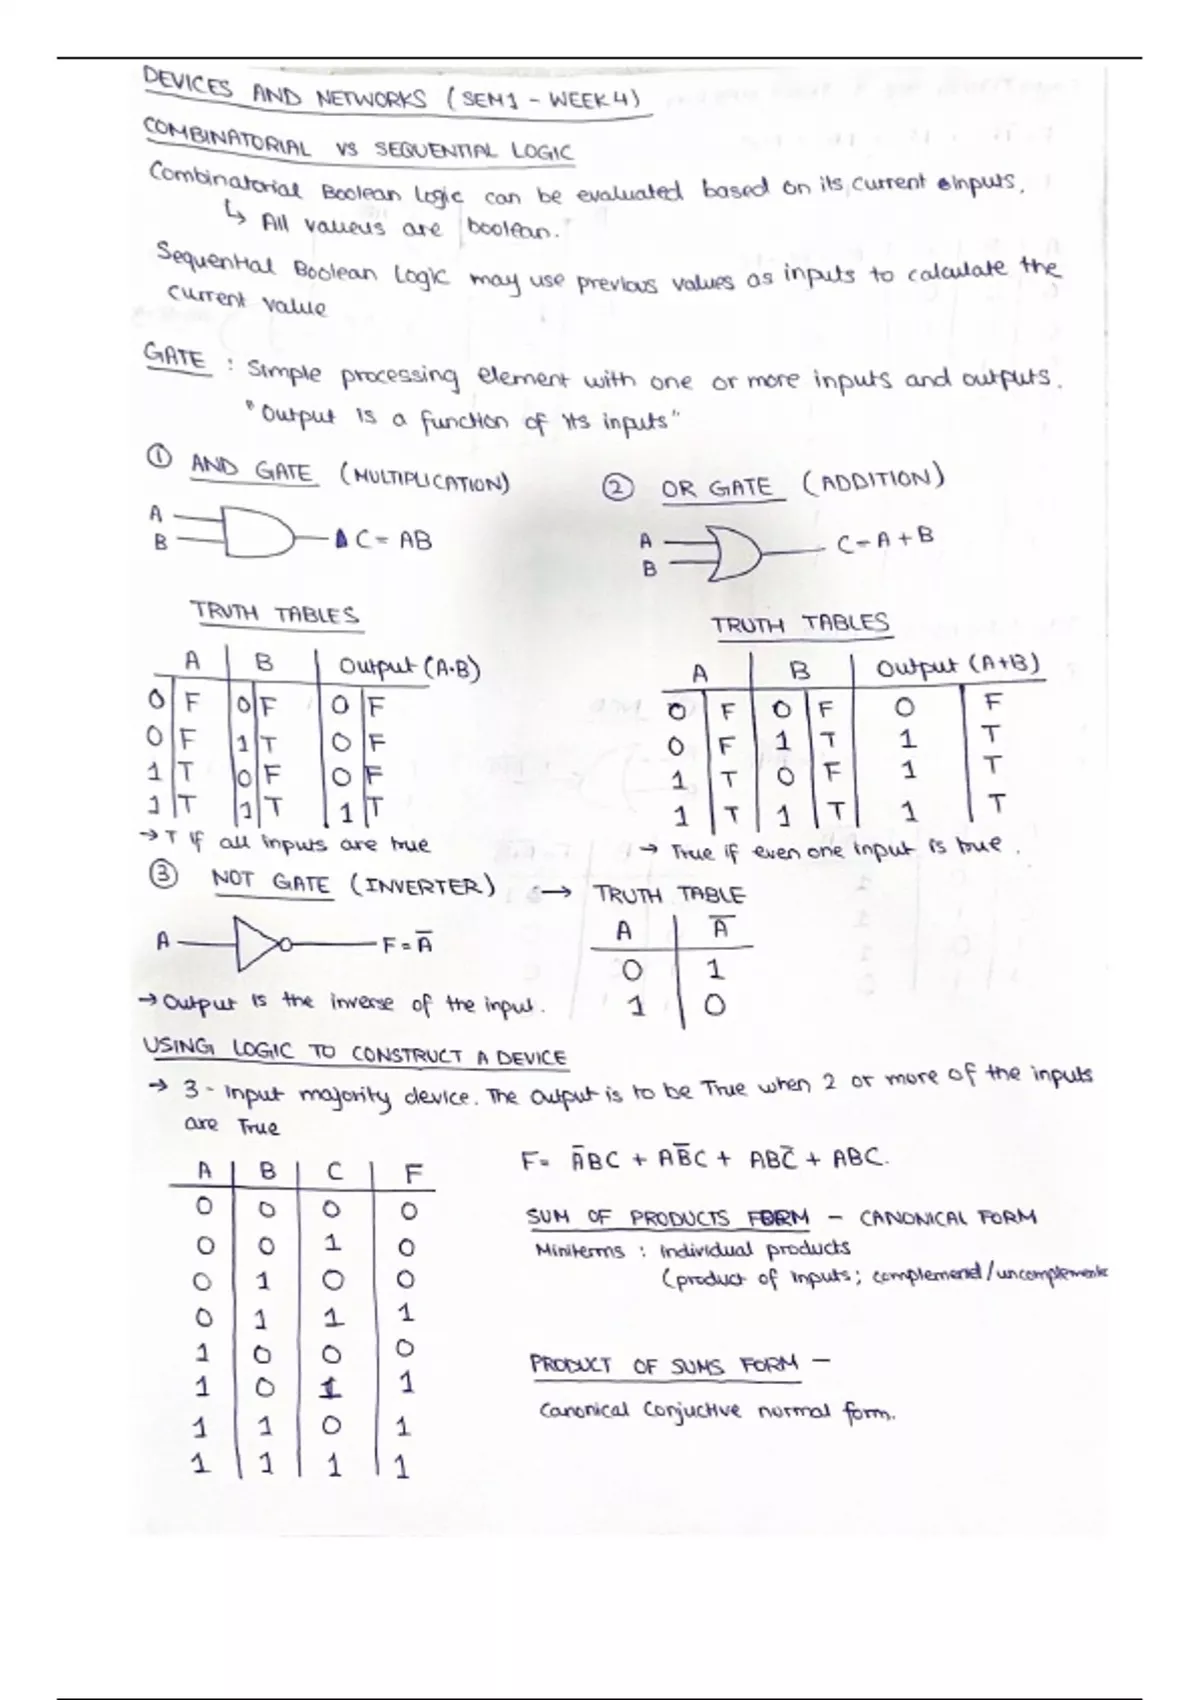 DEVICES AND NETWORKS (SEM1 - WEEK4)
COMBINATORIAL VS SEQUENTIAL LOGIC
Combinatorial Boolean logic can be evaluated based on its current inputs.
↳ All valueus are boolean.
Sequential Boolean Logic may use previous values as inputs to calculate the
current value
GATE : Simple processing element with one or more inputs and outputs.
"Output is a function of its inputs"
① AND GATE (MULTIPLICATION)
② OR GATE (ADDITION)
A
B
C = AB
A
B
C = A + B
TRUTH TABLES
A B Output (A·B)
0 F 0 F 0 F
0 F 1 T 0 F
1 T 0 F 0 F
1 T 1 T 1 T
→ T if all inputs are true
TRUTH TABLES
A B Output (A+B)
0 F 0 F 0 F
0 F 1 T 1 T
1 T 0 F 1 T
1 T 1 T 1 T
→ True if even one input is true.
③ NOT GATE (INVERTER) → TRUTH TABLE
A
F = A̅
A A̅
0 1
1 0
→ Output is the inverse of the input.
USING LOGIC TO CONSTRUCT A DEVICE
→ 3 - Input majority device. The Output is to be True when 2 or more of the inputs
are True
A B C F
0 0 0 0
0 0 1 0
0 1 0 0
0 1 1 1
1 0 0 0
1 0 1 1
1 1 0 1
1 1 1 1
F = A̅BC + AB̅C + ABC̅ + ABC.
SUM OF PRODUCTS FORM - CANONICAL FORM
Miniterms : individual products
(product of inputs; complemented/uncomplemente
PRODUCT OF SUMS FORM -
Canonical Conjuctive normal form.